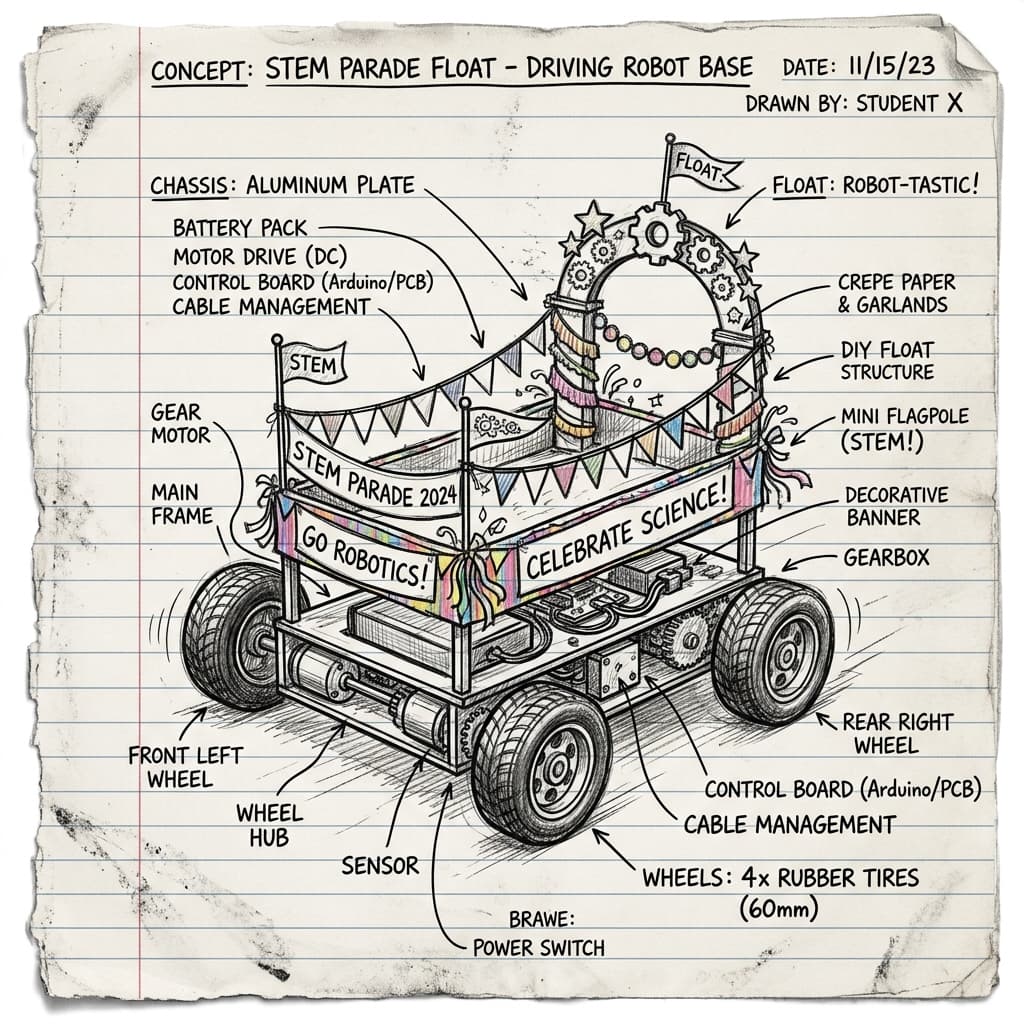 CONCEPT: STEM PARADE FLOAT – DRIVING ROBOT BASE
DATE: 11/15/23
DRAWN BY: STUDENT X
CHASSIS: ALUMINUM PLATE
BATTERY PACK
MOTOR DRIVE (DC)
CONTROL BOARD (Arduino/PCB)
CABLE MANAGEMENT
FLOAT.
FLOAT: ROBOT-TASTIC!
CREPE PAPER
& GARLANDS
DIY FLOAT
STRUCTURE
MINI FLAGPOLE
(STEM!)
DECORATIVE
BANNER
GEARBOX
STEM
GEAR
MOTOR
MAIN
FRAME
STEM PARADE 2024
GO ROBOTICS!
CELEBRATE SCIENCE!
FRONT LEFT
WHEEL
WHEEL
HUB
SENSOR
BRAWE:
POWER SWITCH
REAR RIGHT
WHEEL
CONTROL BOARD (Arduino/PCB)
CABLE MANAGEMENT
WHEELS: 4x RUBBER TIRES
(60mm)